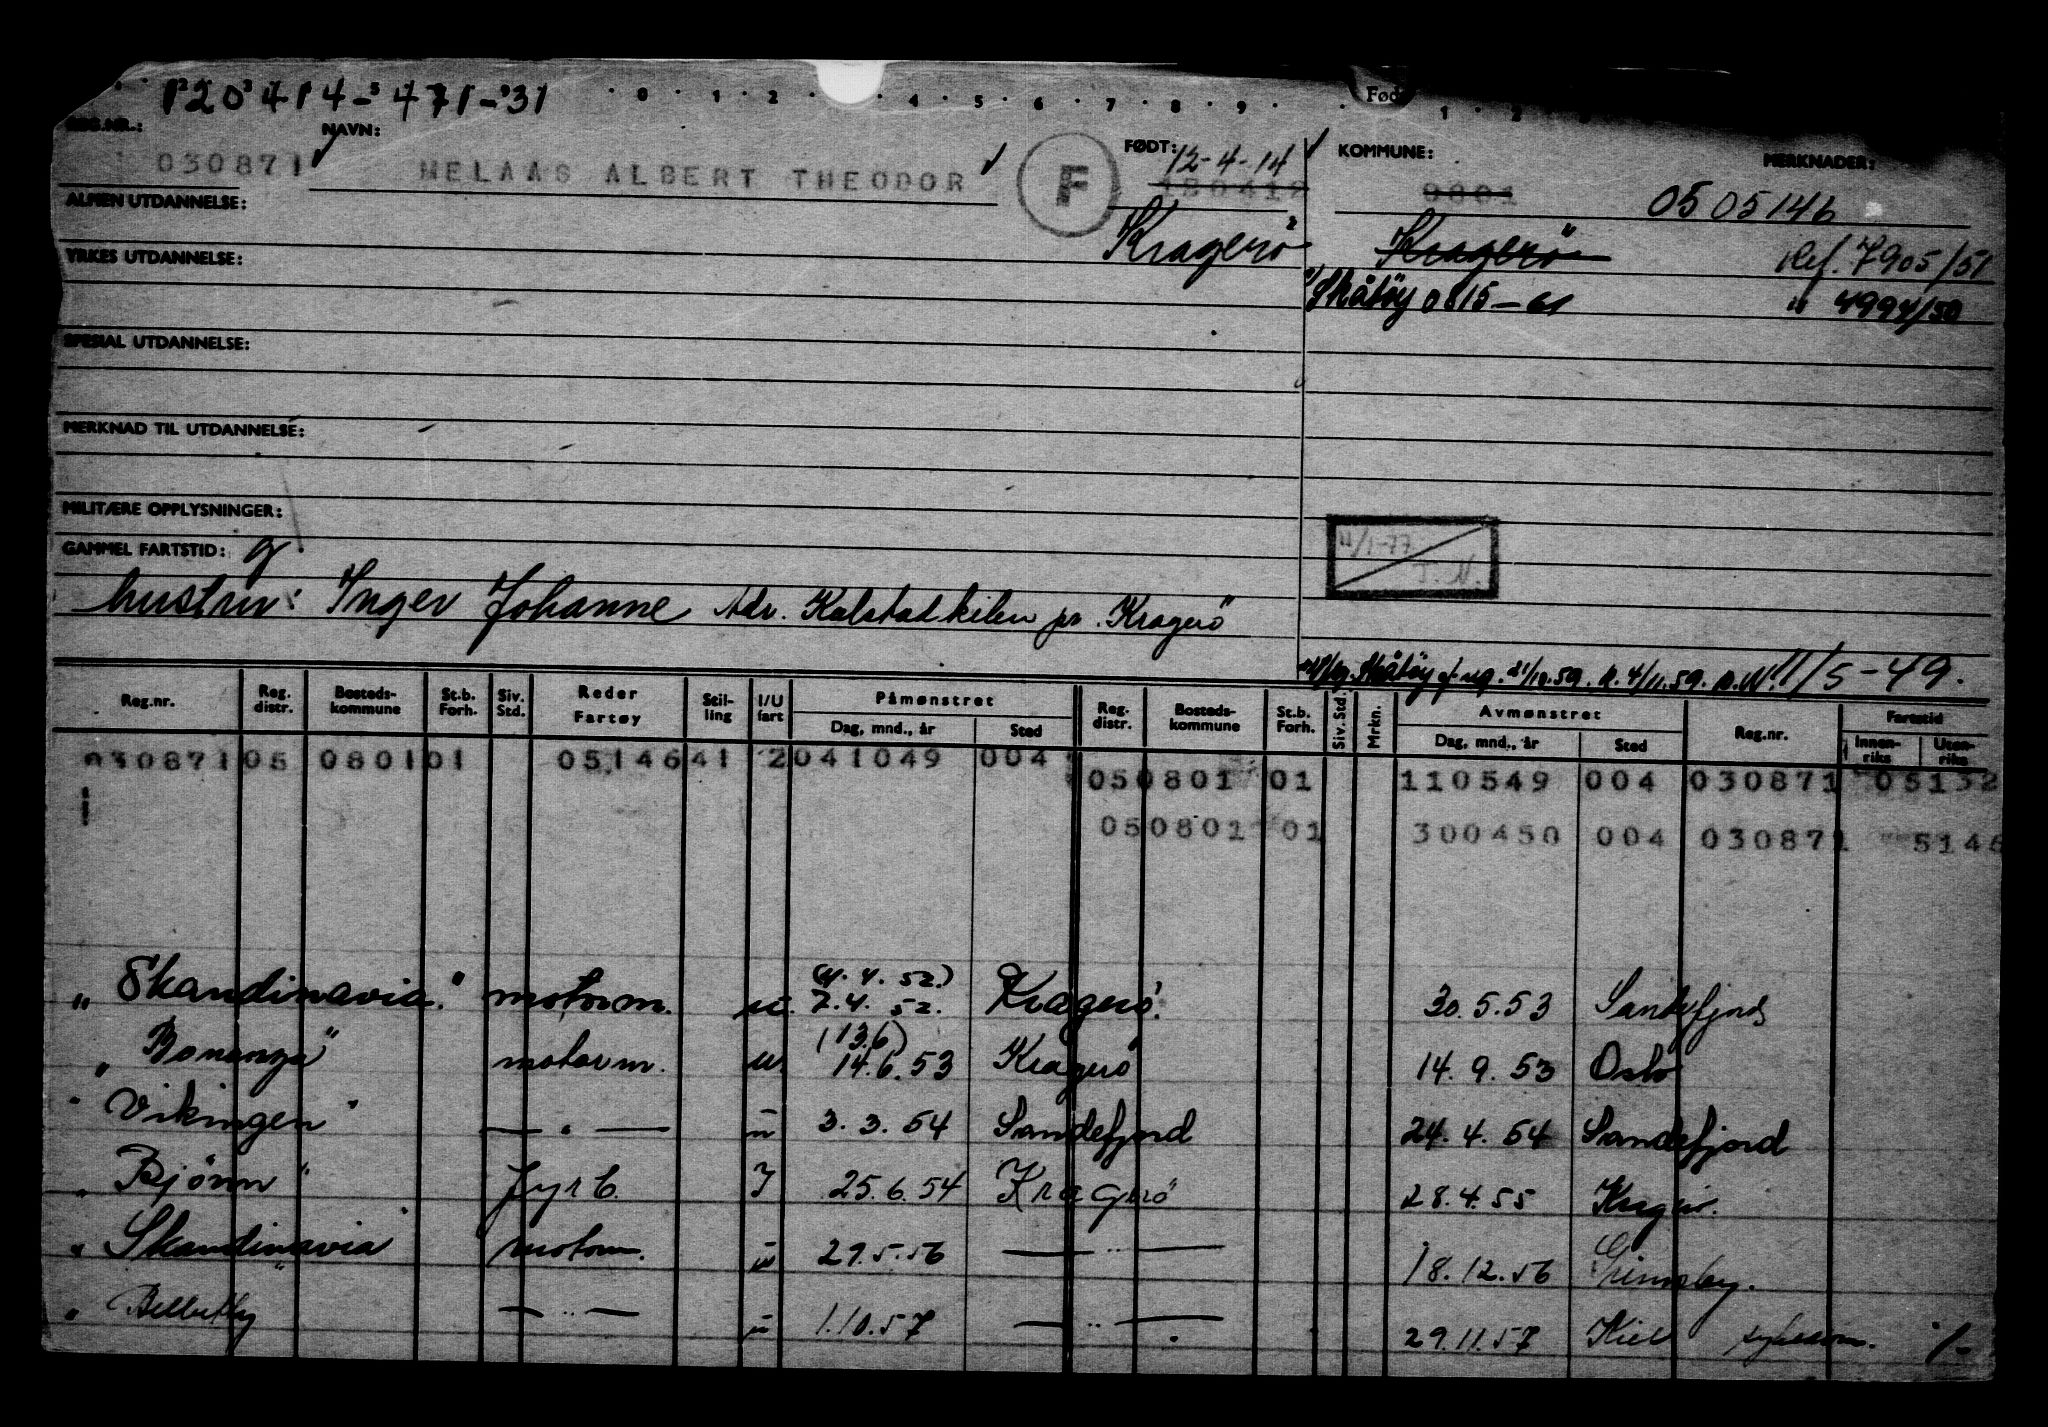 120414-471-31
0 1 2 4 5 6 7 8 9 Fød 1 2
REG.NR.: NAVN: FØDT: KOMMUNE: MERKNADER:
030871 MELAAS ALBERT THEODOR F 12-4-14 0801 0505146
ALMEN UTDANNELSE:
Kragerö Kragerö Ref. 7905/51
YRKES UTDANNELSE:
Skåtöy 0815-61 " 4994/50
SPESIAL UTDANNELSE:
MERKNAD TIL UTDANNELSE:
MILITÆRE OPPLYSNINGER:
GAMMEL FARTSTID: g.
11/1-77 T.N.
hustru: Inger Johanne Adr. Kalstadkilen pr. Kragerö
Skåtöy 21/10.59. 4/11.59. 11/5-49.
Reg.nr. Reg. distr. Bosteds-kommune St.b. Forh. Siv. Std. Reder Fartøy Stil-ling I/U fart Påmønstret Dag, mnd., år Sted Reg. distr. Bosteds-kommune St.b. Forh. Siv. Std. Mrkn. Avmønstret Dag, mnd., år Sted Reg.nr. Fartstid Innen-riks Uten-riks
030871 05 0801 01 05146 41 2 041049 004
050801 01 110549 004 030871 05132
050801 01 300450 004 030871 5146
"Skandinavia" motorm. u. (4.4.52.) 2.4.52. Kragerö. 30.5.53 Sandefjord
"Bonanza" motorm. u. (13.6) 14.6.53 Kragerö 14.9.53 Oslo
"Vikingen" — " — u 3.3.54 Sandefjord 24.4.54 Sandefjord
"Bjönn" fyrb. I 25.6.54 Kragerö 28.4.55 Kragerö.
"Skandinavia" motorm. u 29.5.56 — " — 18.12.56 Grimsby.
" — " — u 1.10.57 — " — 29.11.57 Kiel sykdom. /-